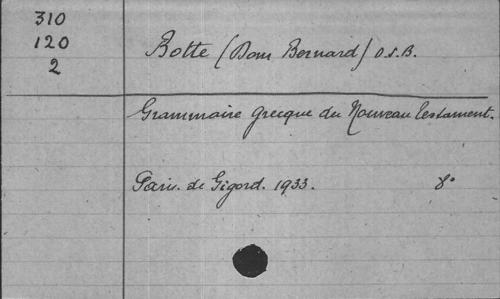 310
120
2
Botte (Dom Bernard) O.S.B.
Grammaire grecque du Nouveau Testament.
Paris. de Gigord. 1933. 8°